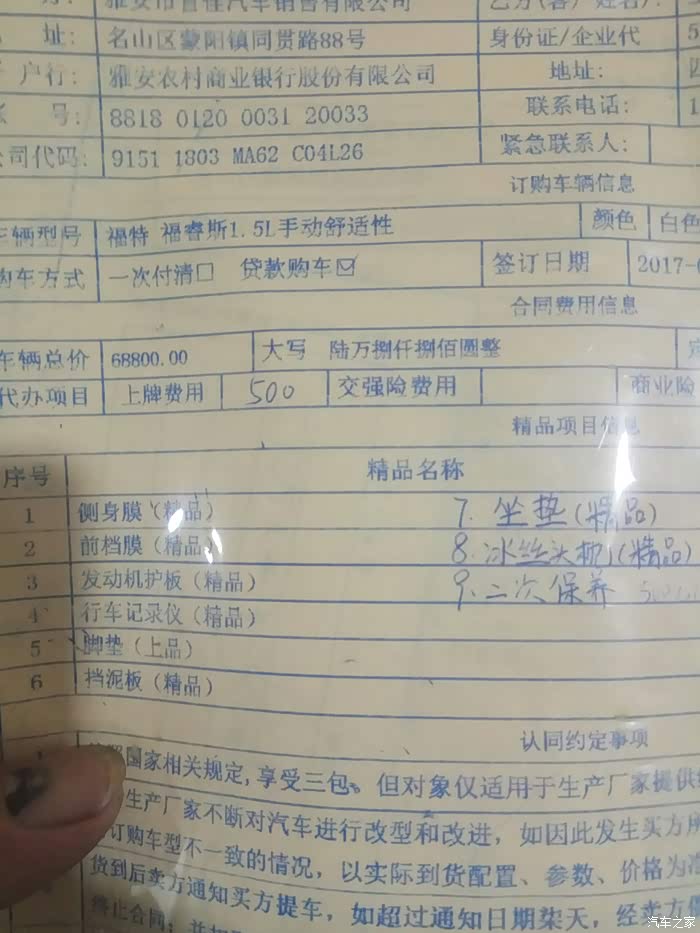 汽车销售有限公司
址: 名山区蒙阳镇同贯路88号 身份证/企业代
户行: 雅安农村商业银行股份有限公司 地址:
号: 8818 0120 0031 20033 联系电话: 1
司代码: 9151 1803 MA62 C04L26 紧急联系人:
订购车辆信息
车辆型号 福特 福睿斯1.5L手动舒适性 颜色 白色
购车方式 一次付清□ 贷款购车☑ 签订日期 2017-0
合同费用信息
车辆总价 68800.00 大写 陆万捌仟捌佰圆整
代办项目 上牌费用 500 交强险费用 商业险
精品项目信息
序号 精品名称
1 侧身膜(精品) 7. 坐垫(精品)
2 前档膜(精品) 8. 冰丝头枕(精品)
3 发动机护板(精品) 9. 二次保养
4 行车记录仪(精品)
5 脚垫(上品)
6 挡泥板(精品)
认同约定事项
国家相关规定,享受三包。但对象仅适用于生产厂家提供
生产厂家不断对汽车进行改型和改进，如因此发生买方所
订购车型不一致的情况，以实际到货配置、参数、价格为准
货到后卖方通知买方提车，如超过通知日期柒天，经卖方
终止合同;
汽车之家